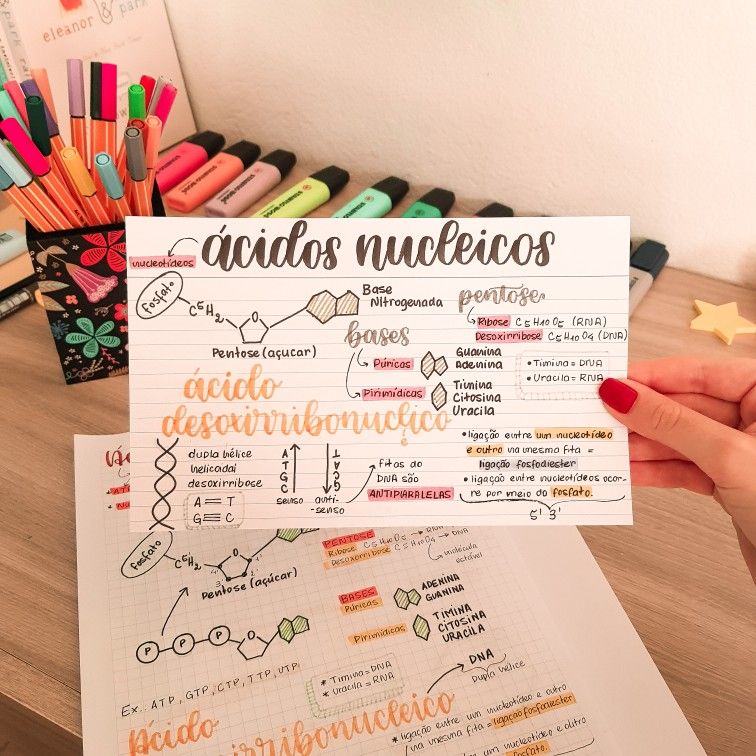 eleanor & park
ácidos nucleicos
nucleotídeos
fosfato
C5H2
Pentose (açucar)
Base
Nitrogenada
pentose
Ribose C5H10O5 (RNA)
Desoxirribose C5H10O4 (DNA)
bases
Púricas
Guanina
Adenina
Pirimídicas
Timina
Citosina
Uracila
• Timina = DNA
• Uracila = RNA
ácido
desoxirribonucleico
dupla hélice
helicoidal
desoxirribose
A = T
G ≡ C
A
T
G
C
senso
T
A
C
G
anti-
senso
fitas do
DNA são
ANTIPARALELAS
• ligação entre um nucleotídeo
e outro na mesma fita =
ligação fosfodiester
• ligação entre nucleotídeos ocor-
re por meio do fosfato.
5' 3'
fosfato
C5H2
Pentose (açúcar)
PENTOSE
Ribose C5H10O5 → RNA
Desoxirribose C5H10O4 → DNA
molécula
estável
BASES
Púricas
ADENINA
GUANINA
Pirimídicas
TIMINA
CITOSINA
URACILA
P P P
Ex.: ATP, GTP, CTP, TTP, UTP
* Timina = DNA
* Uracila = RNA
DNA
Dupla hélice
Ácido
desoxirribonucleico
* ligação entre um nucleotídeo e outro
na mesma fita = ligação fosfodiester
um nucleotídeo e outro
fosfato.